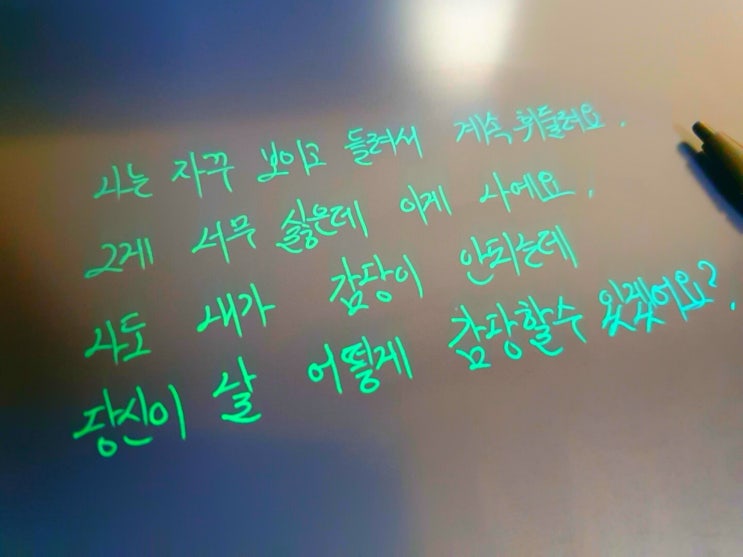 나는 자꾸 보이고 들려서 계속 휘둘려요.
그게 너무 싫은데 이게 나예요.
나도 내가 감당이 안되는데
당신이 날 어떻게 감당할수 있겠어요?